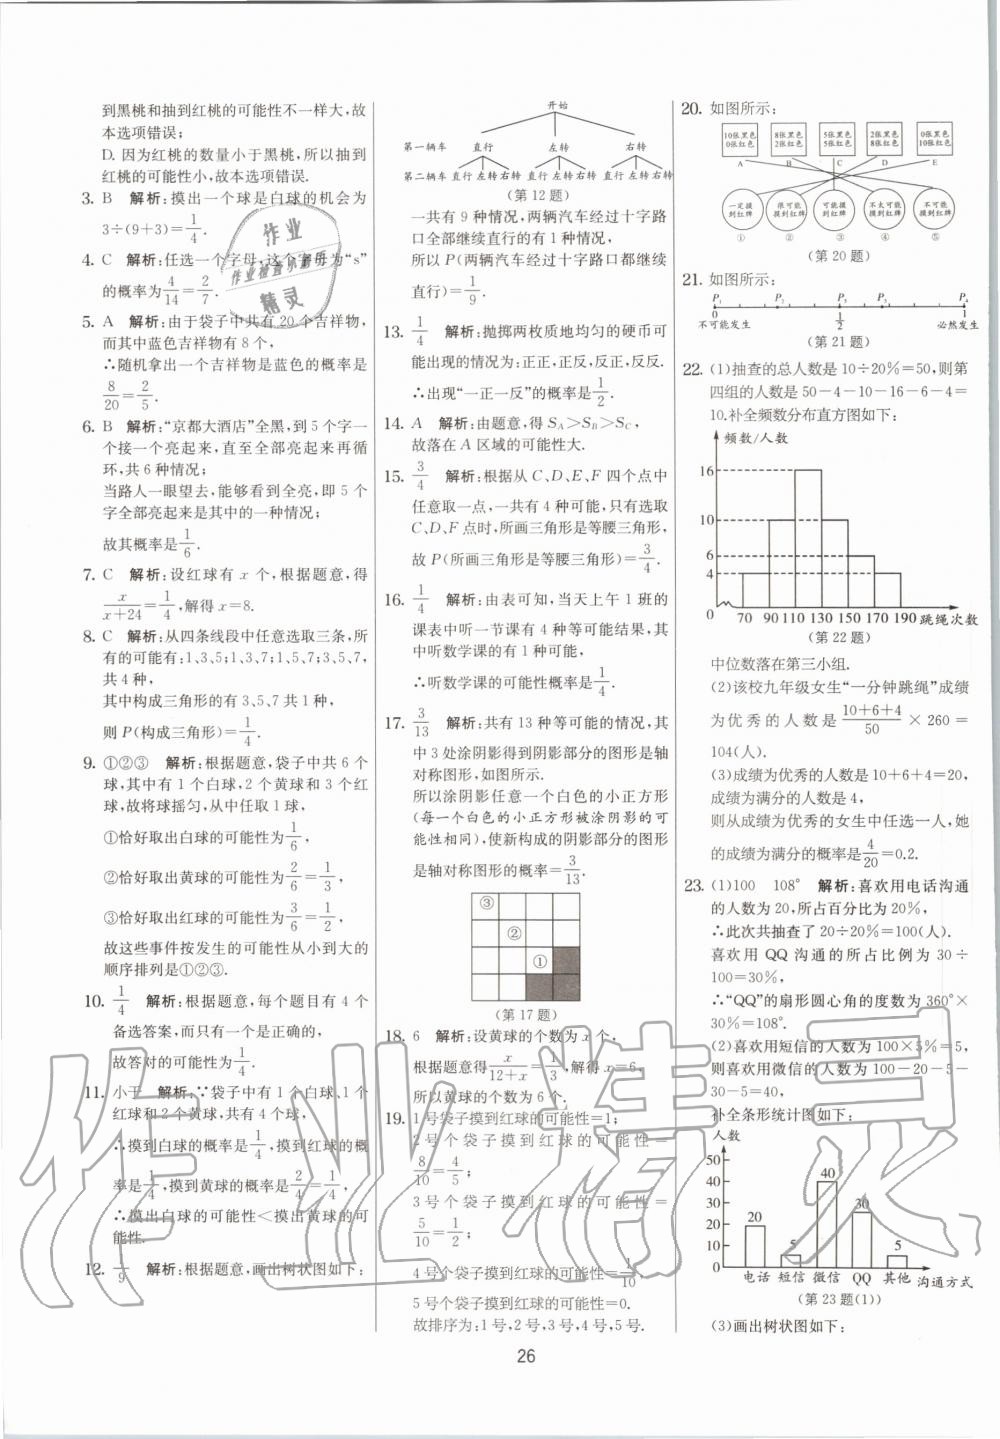 到黑桃和抽到红桃的可能性不一样大,故
本选项错误;
D. 因为红桃的数量小于黑桃,所以抽到
红桃的可能性小,故本选项错误.
3. B 解析:摸出一个球是白球的机会为
3÷(9+3)=1/4.
4. C 解析:任选一个字母,这个字母为“s”
的概率为4/14=2/7.
5. A 解析:由于袋子中共有 20 个吉祥物,
而其中蓝色吉祥物有 8 个,
∴随机拿出一个吉祥物是蓝色的概率是
8/20=2/5.
6. B 解析:“京都大酒店”全黑,到 5 个字一
个接一个亮起来,直至全部亮起来再循
环,共 6 种情况;
当路人一眼望去,能够看到全亮,即 5 个
字全部亮起来是其中的一种情况;
故其概率是1/6.
7. C 解析:设红球有 x 个,根据题意,得
x/(x+24)=1/4,解得 x=8.
8. C 解析:从四条线段中任意选取三条,所
有的可能有:1,3,5;1,3,7;1,5,7;3,5,7,
共 4 种,
其中构成三角形的有 3,5,7 共 1 种,
则 P(构成三角形)=1/4.
9. ①②③ 解析:根据题意,袋子中共 6 个
球,其中有 1 个白球,2 个黄球和 3 个红
球,故将球摇匀,从中任取 1 球,
①恰好取出白球的可能性为1/6,
②恰好取出黄球的可能性为2/6=1/3,
③恰好取出红球的可能性为3/6=1/2,
故这些事件按发生的可能性从小到大的
顺序排列是①②③.
10. 1/4 解析:根据题意,每个题目有 4 个
备选答案,而只有一个是正确的,
故答对的可能性为1/4.
11. 小于 解析:∵袋子中有 1 个白球、1 个
红球和 2 个黄球,共有 4 个球,
∴摸到白球的概率是1/4,摸到红球的概
率是1/4,摸到黄球的概率是2/4=1/4,
∴摸出白球的可能性<摸出黄球的可
能性.
12. 1/9 解析:根据题意,画出树状图如下:
开始
第一辆车 直行 左转 右转
第二辆车 直行 左转右转 直行 左转右转 直行 左转右转
(第 12 题)
一共有 9 种情况,两辆汽车经过十字路
口全部继续直行的有 1 种情况,
所以 P(两辆汽车经过十字路口都继续
直行)=1/9.
13. 1/4 解析:抛掷两枚质地均匀的硬币可
能出现的情况为:正正,正反,反正,反反.
∴出现“一正一反”的概率是1/2.
14. A 解析:由题意,得 SA>SB>SC,
故落在 A 区域的可能性大.
15. 3/4 解析:根据从 C、D、E、F 四个点中
任意取一点,一共有 4 种可能,只有选取
C、D、F 点时,所画三角形是等腰三角形,
故 P(所画三角形是等腰三角形)=3/4.
16. 1/4 解析:由表可知,当天上午 1 班的
课表中听一节课有 4 种等可能结果,其
中听数学课的有 1 种可能,
∴听数学课的可能性概率是1/4.
17. 3/13 解析:共有 13 种等可能的情况,其
中 3 处涂阴影得到阴影部分的图形是轴
对称图形,如图所示.
所以涂阴影任意一个白色的小正方形
(每一个白色的小正方形被涂阴影的可
能性相同),使新构成的阴影部分的图形
是轴对称图形的概率=3/13.
③
②
①
(第 17 题)
18. 6 解析:设黄球的个数为 x 个,
根据题意得x/(12+x)=1/3,解得 x=6,
所以黄球的个数为 6 个.
19. 1 号袋子摸到红球的可能性=1;
2 号个袋子摸到红球的可能性=
8/10=4/5;
3 号个袋子摸到红球的可能性=
5/10=1/2;
4 号个袋子摸到红球的可能性=1/10
5 号个袋子摸到红球的可能性=0.
故排序为:1 号,2 号,3 号,4 号,5 号.
20. 如图所示:
10张黑色 0张红色 8张黑色 2张红色 5张黑色 5张红色 2张黑色 8张红色 0张黑色 10张红色
A B C D E
一定摸到红牌 很可能摸到红牌 可能摸到红牌 不太可能摸到红牌 不可能摸到红牌
① ② ③ ④ ⑤
(第 20 题)
21. 如图所示:
P1 P2 P5 P3 P4
0 1/2 1
不可能发生 必然发生
(第 21 题)
22. (1)抽查的总人数是 10÷20%=50,则第
四组的人数是 50-4-10-16-6-4=
10.补全频数分布直方图如下:
频数/人数
16
10
6
4
0 70 90 110 130 150 170 190 跳绳次数
(第 22 题)
中位数落在第三小组.
(2)该校九年级女生“一分钟跳绳”成绩
为优秀的人数是(10+6+4)/50×260=
104(人).
(3)成绩为优秀的人数是 10+6+4=20,
成绩为满分的人数是 4,
则从成绩为优秀的女生中任选一人,她
的成绩为满分的概率是4/20=0.2.
23. (1)100 108° 解析:喜欢用电话沟通
的人数为 20,所占百分比为 20%,
∴此次共抽查了 20÷20%=100(人).
喜欢用 QQ 沟通的所占比例为 30÷
100=30%,
∴“QQ”的扇形圆心角的度数为 360°×
30%=108°.
(2)喜欢用短信的人数为 100×5%=5,
则喜欢用微信的人数为 100-20-5-
30-5=40,
补全条形统计图如下:
人数
50
40
30
20
10
0
20 5 40 30 5
电话 短信 微信 QQ 其他 沟通方式
(第 23 题(1))
(3)画出树状图如下:
26
作业
作业检查小助手
精灵
作业精灵